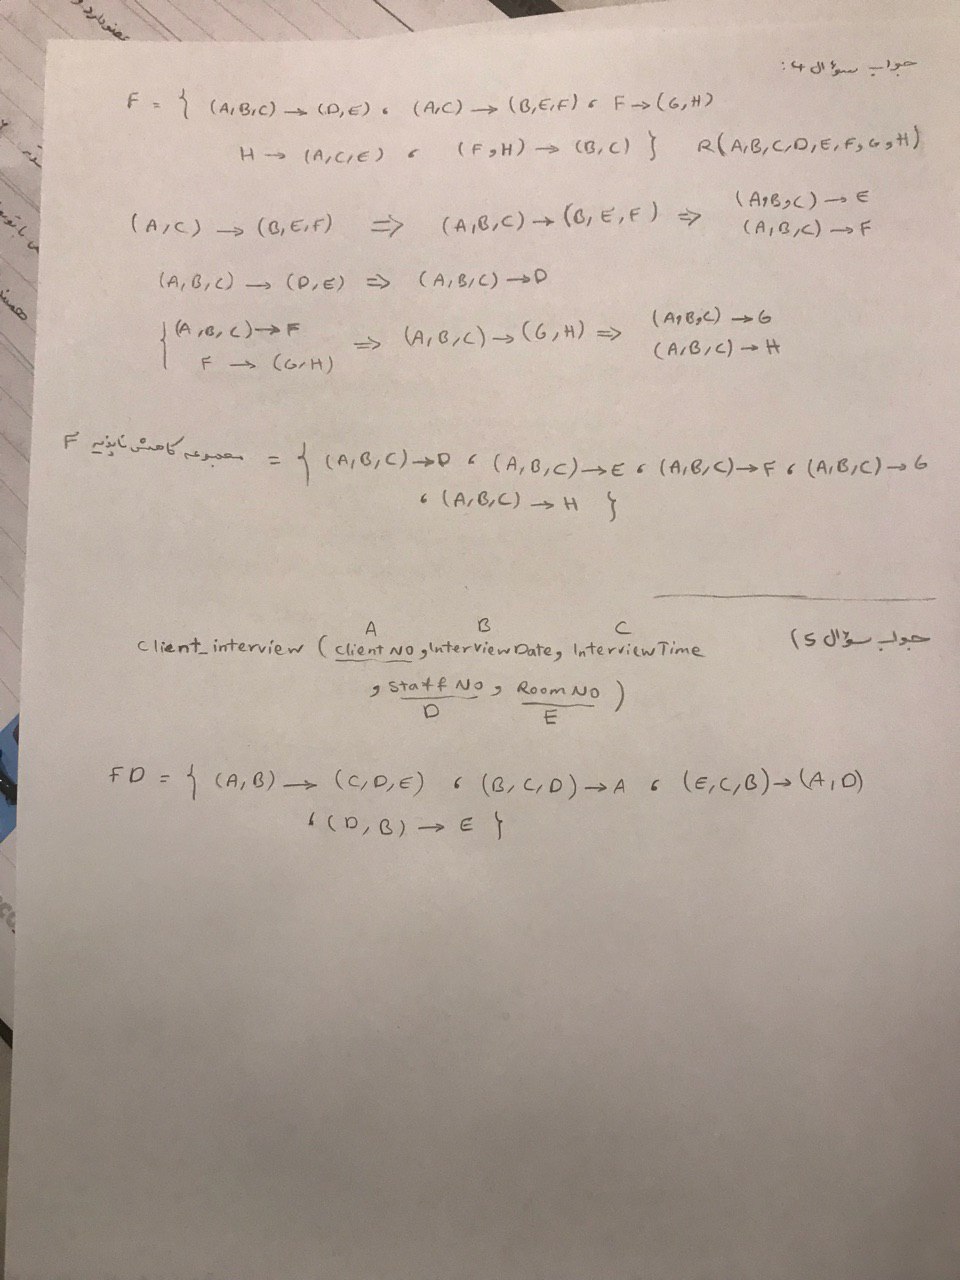 جواب سؤال 4:
F = { (A,B,C) → (D,E) ، (A,C) → (B,E,F) ، F → (G,H)
H → (A,C,E) ، (F,H) → (B,C) } R(A,B,C,D,E,F,G,H)
(A,C) → (B,E,F) ⇒ (A,B,C) → (B,E,F) ⇒ (A,B,C) → E
(A,B,C) → F
(A,B,C) → (D,E) ⇒ (A,B,C) → D
{ (A,B,C) → F ⇒ (A,B,C) → (G,H) ⇒ (A,B,C) → G
F → (G,H) (A,B,C) → H
F مجموعه کاهش ناپذیر = { (A,B,C) → D ، (A,B,C) → E ، (A,B,C) → F ، (A,B,C) → G
، (A,B,C) → H }
جواب سؤال 5)
A B C
Client_interview ( client No , InterviewDate, InterviewTime
, Staff No , Room No )
D E
FD = { (A,B) → (C,D,E) ، (B,C,D) → A ، (E,C,B) → (A,D)
، (D,B) → E }
همسن